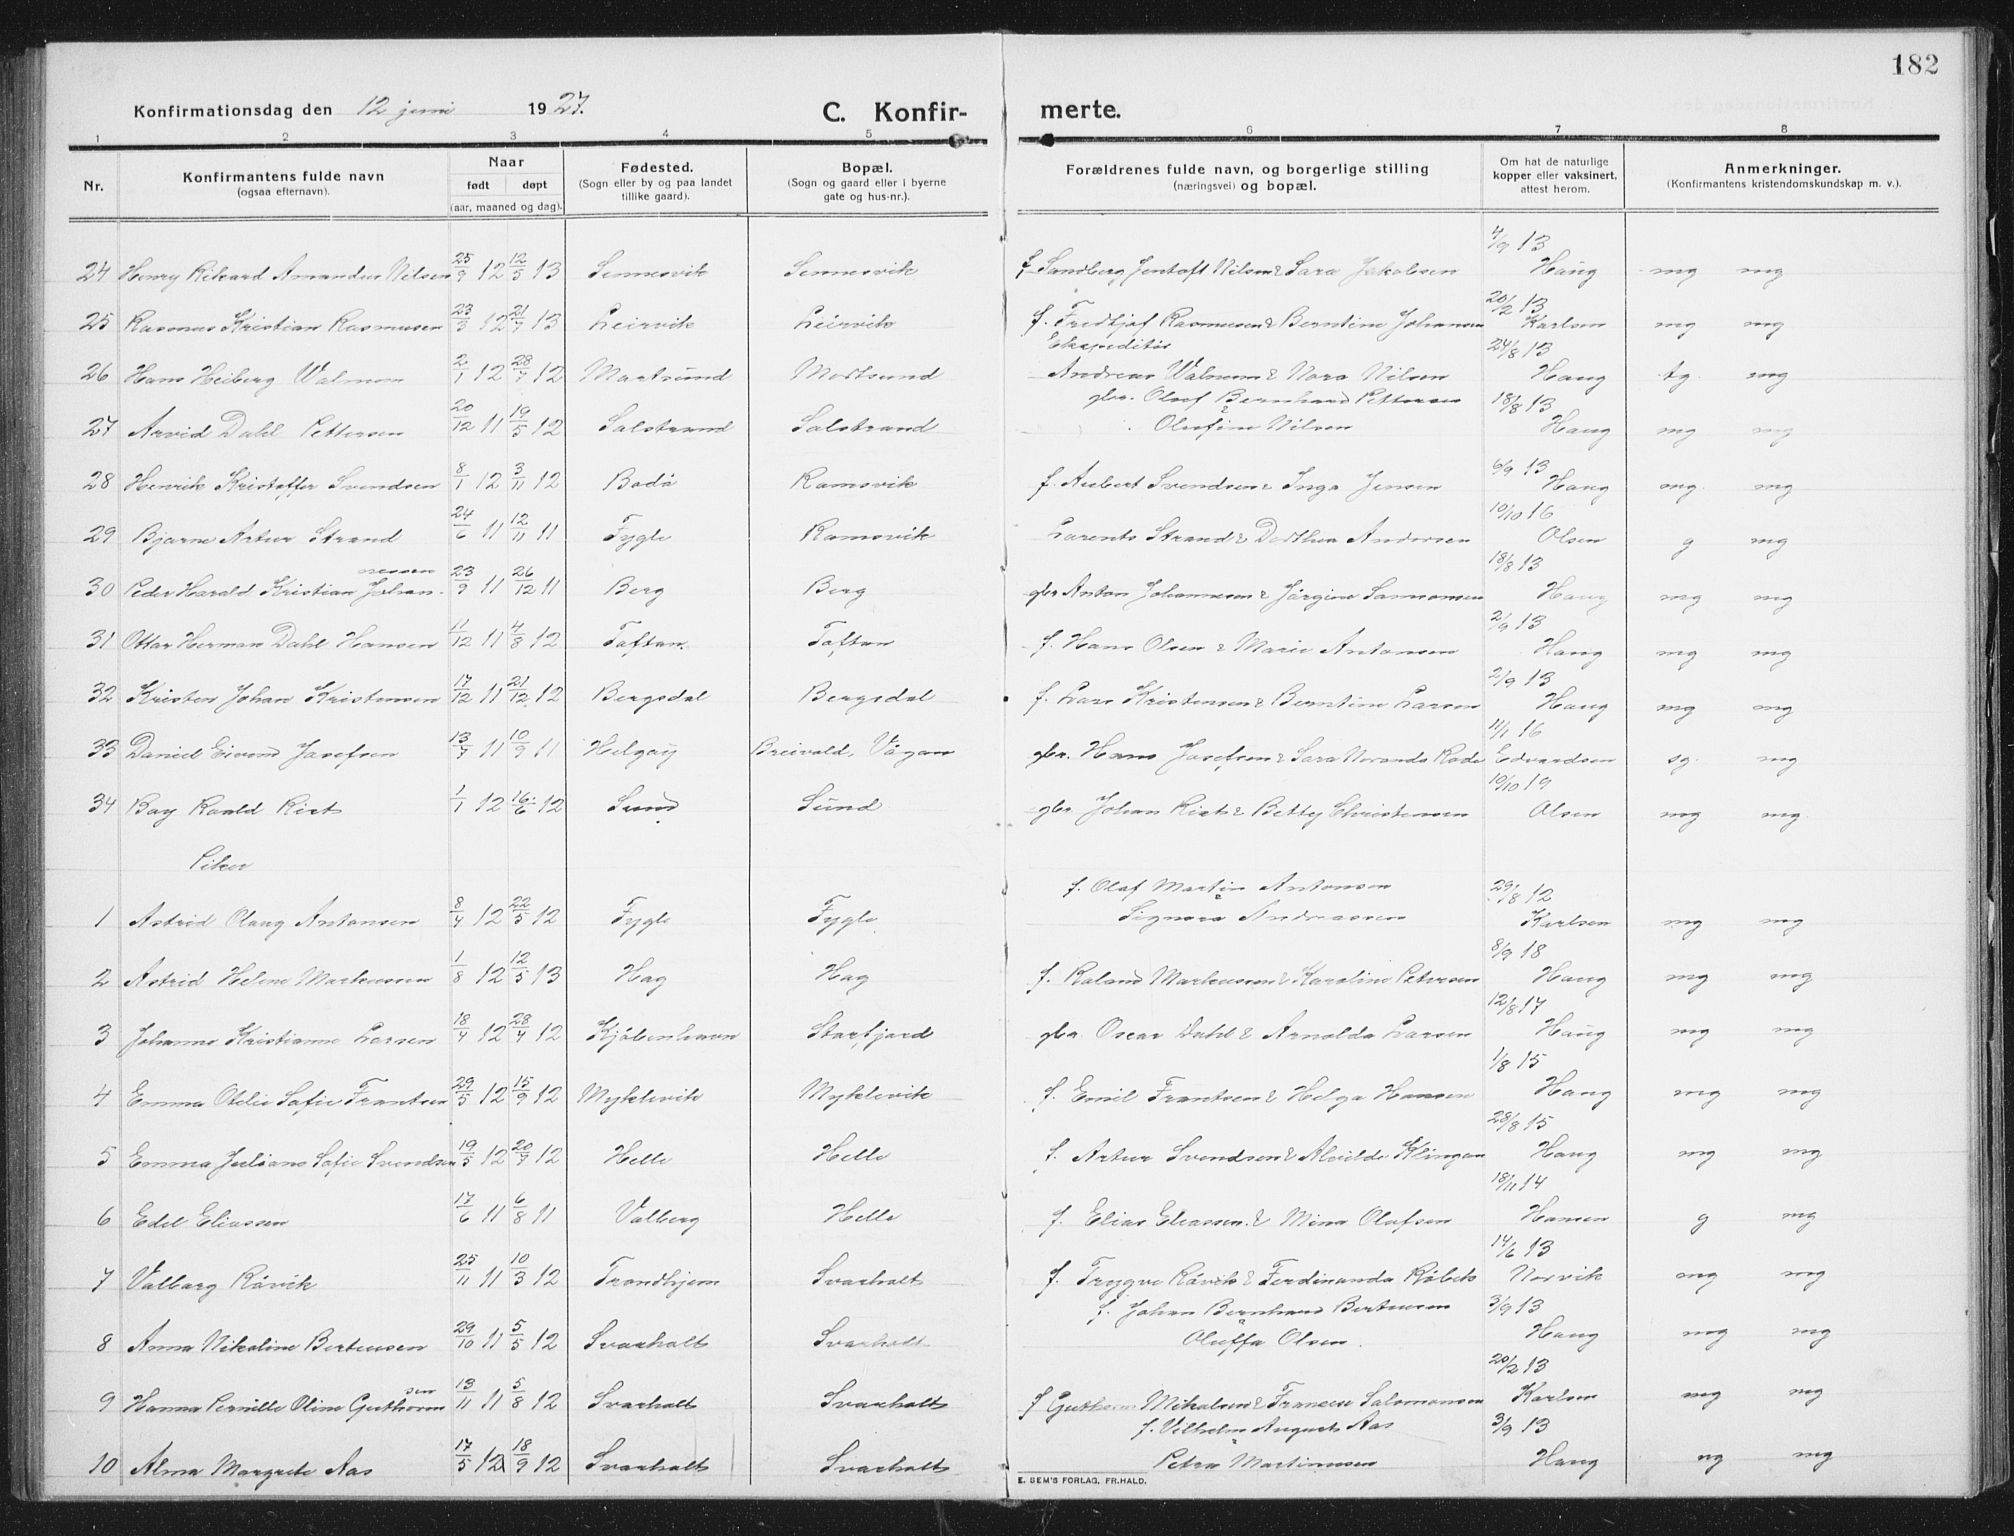 182
Konfirmationsdag den 12 juni 1927.
C. Konfir-
merte.
1 2 3 4 5 6 7 8
Nr.
Konfirmantens fulde navn
(ogsaa efternavn).
Naar
født døpt
(aar, maaned og dag).
Fødested.
(Sogn eller by og paa landet
tillike gaard).
Bopæl.
(Sogn og gaard eller i byerne
gate og hus-nr.).
Forældrenes fulde navn, og borgerlige stilling
(næringsvei) og bopæl.
Om hat de naturlige
kopper eller vaksinert,
attest herom.
Anmerkninger.
(Konfirmantens kristendomskundskap m. v.).
24 Henry Rikard Amandus Nilsen 25/9 12 12/5 13 Sennesvik Sennesvik f. Sandberg Jentoft Nilsen & Sara Jakobsen 4/9 13 Haug mg mg
25 Rasmus Kristian Rasmusen 23/3 12 21/7 13 Leirvik Leirvik f. Fredtjof Rasmusen & Berntine Johansen 20/2 13 Karlsen mg mg
26 Hans Heiberg Walnum 2/1 12 28/7 12 Mortsund Mortsund Ekspeditør Andreas Walnum & Nora Nilsen 24/8 13 Haug tg. mg
27 Arvid Dahl Pettersen 20/12 11 19/5 12 Salstrand Salstrand gbr. Oluf Bernhard Pettersen & Olufine Nilsen 18/8 13 Haug mg mg
28 Henrik Kristoffer Svendsen 8/1 12 3/11 12 Bodö Ramsvik f. Aubert Svendsen & Inga Jensen 6/9 13 Haug mg. mg
29 Bjarne Artur Strand 24/6 11 12/11 11 Fygle Ramsvik Larents Strand & Dorthea Andersen 10/10 16 Olsen g mg
30 Peder Harald Kristian Johannessen 23/9 11 26/12 11 Berg Berg gbr Anton Johannesen & Jörgine Sannonsen 18/8 13 Haug mg mg
31 Ottar Herman Dahl Hansen 11/12 11 4/8 12 Toftan Toftan f. Hans Olsen & Marie Antonsen 2/9 13 Haug mg mg
32 Kristen Johan Kristensen 17/12 11 21/12 12 Bergsdal Bergsdal f. Lars Kristensen & Berntine Larsen 2/9 13 Haug mg mg
33 Daniel Eivind Josefsen 13/7 11 10/9 11 Helgöy Breivold, Vågan gbr. Hans Josefsen & Sara Noranda 11/1 16 Edvardsen sg. mg
34 Roald Rist 1/1 12 16/6 12 Sund Sund gbr Johan Rist & Betty Christensen 10/10 19 Olsen mg mg.
Piker
1 Astrid Olaug Antonsen 8/4 12 22/5 12 Fygle Fygle f. Olaf Martin Antonsen & Signora Andreassen 29/8 12 Karlsen mg mg
2 Astrid Helene Markussen 1/8 12 12/5 13 Hag Hag f. Roland Markussen & Karoline Petersen 8/9 18 Haug mg mg
3 Johanne Kristianne Larsen 18/4 12 28/4 12 Kjöbenhavn Storfjord gbr. Oscar Dahl & Arnolda Larsen 12/8 17 Haug mg mg
4 Emma Otelie Sofie Frantsen 29/5 12 15/9 12 Myklevik Myklevik f. Emil Frantsen & Helga Hansen 1/8 15 Haug mg mg
5 Emma Juliane Sofie Svendsen 19/5 12 20/7 12 Helle Helle f. Artur Svendsen & Alvilde Klingan 28/8 15 Haug mg mg
6 Edel Eliassen 17/6 11 6/8 11 Valberg Helle f. Elias Eliassen & Mina Olafsen 18/11 14 Hansen g mg
7 Valborg Rávik 25/11 11 10/3 12 Trondhjem Svarholt f. Trygve Rávik & Ferdinanda 14/6 13 Norvik mg mg
8 Anna Nikoline Berteussen 29/10 11 5/5 12 Svarholt Svarholt f. Johan Bernhard Berteussen & Oluffa Olsen. 3/9 13 Haug mg mg
9 Hanna Pernille Oline Guthormsen 13/11 11 5/8 12 Svarholt Svarholt f Guthorm Mikalsen & Fransene Salomonsen 20/2 13 Karlsen mg mg
10 Alma Margrete Aas 17/5 12 18/9 12 Svarholt Svarholt f. Vilhelm August Aas & Petra Martinusen 3/9 13 Haug ng mg
E. SEM'S FORLAG, FR.HALD.